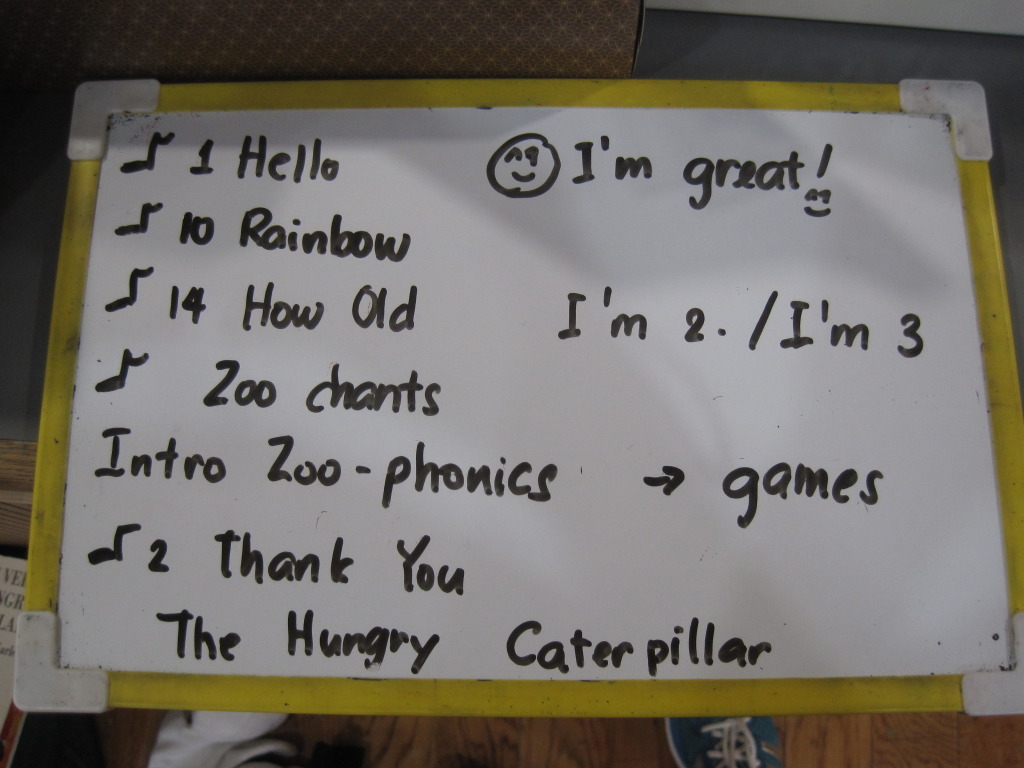 ♪ 1 Hello I'm great!
♪ 10 Rainbow
♪ 14 How Old I'm 2. / I'm 3
♪ Zoo chants
Intro Zoo-phonics → games
♪ 2 Thank You
The Hungry Caterpillar